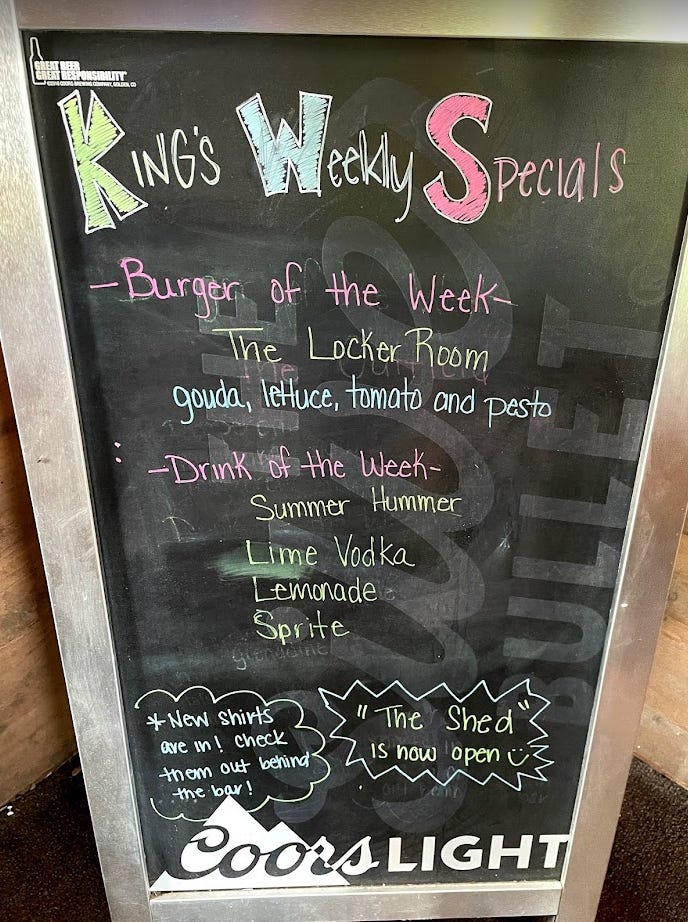 GREAT BEER
GREAT RESPONSIBILITY
King's Weekly Specials
-Burger of the Week-
The Locker Room
gouda, lettuce, tomato and pesto
-Drink of the Week-
Summer Hummer
Lime Vodka
Lemonade
Sprite
*New shirts
are in! check
them out behind
the bar!
"The Shed"
is now open
Coors LIGHT
THE
SILVER
BULLET